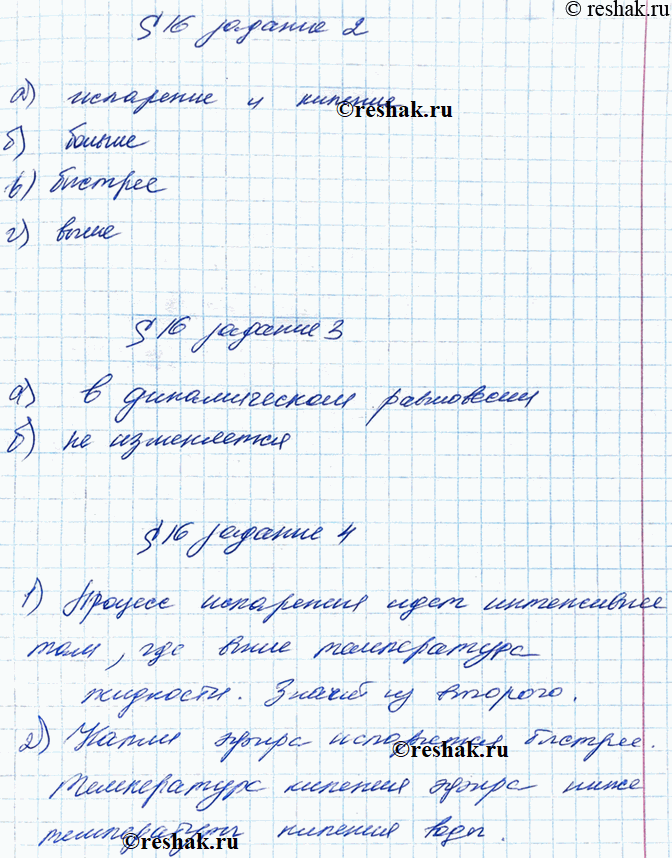 © reshak.ru
§16 задание 2
а) испарение и кипение
©reshak.ru
б) больше
в) быстрее
©reshak.ru
г) выше
§16 задание 3
а) в динамическом равновесии
б) не изменяется
©reshak.ru
§16 задание 4
1) Процесс испарения идет интенсивнее
там, где выше температура
жидкости. Значит из второго.
2) Капля эфира испаряется быстрее.
©reshak.ru
Температура кипения эфира ниже
температуры кипения воды.
©reshak.ru